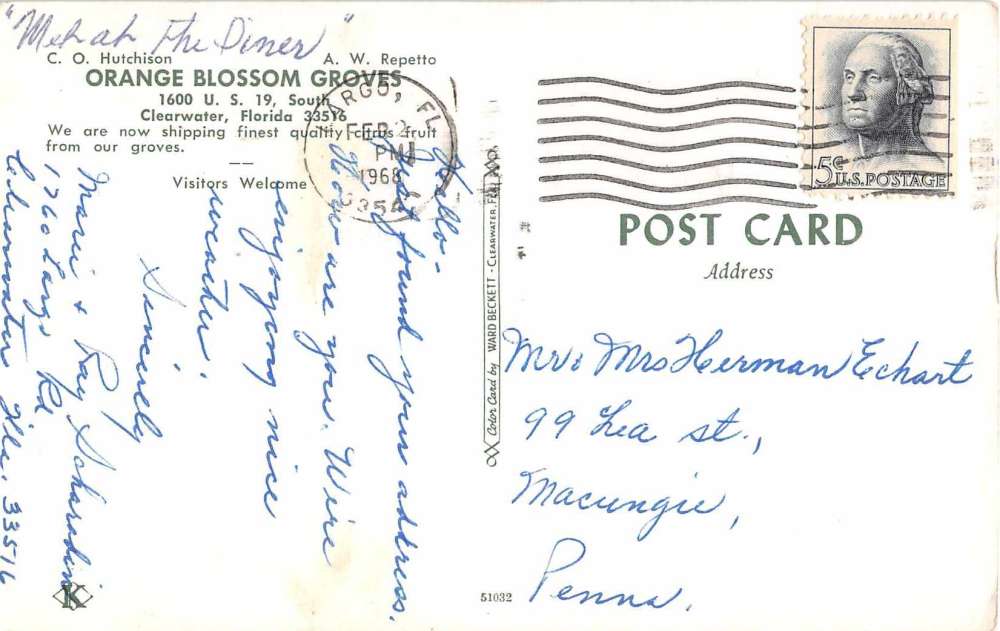 "Met at The Diner"
C. O. Hutchison A. W. Repetto
ORANGE BLOSSOM GROVES
1600 U. S. 19, South
Clearwater, Florida 33516
We are now shipping finest quality citrus fruit
from our groves.
Visitors Welcome
LARGO, FL
FEB 2
PM
1968
Hello-
Just found your address.
How are you. We're
enjoying nice
weather.
Sincerely
Marie & Ray Scharadin
1760 Largo Rd
Clearwater Fla. 33516
K
Color Card by WARD BECKETT - CLEARWATER, FLA.
51032
5¢
U.S. POSTAGE
POST CARD
Address
Mr & Mrs Herman Eckart
99 Lea st.,
Macungie,
Penna.